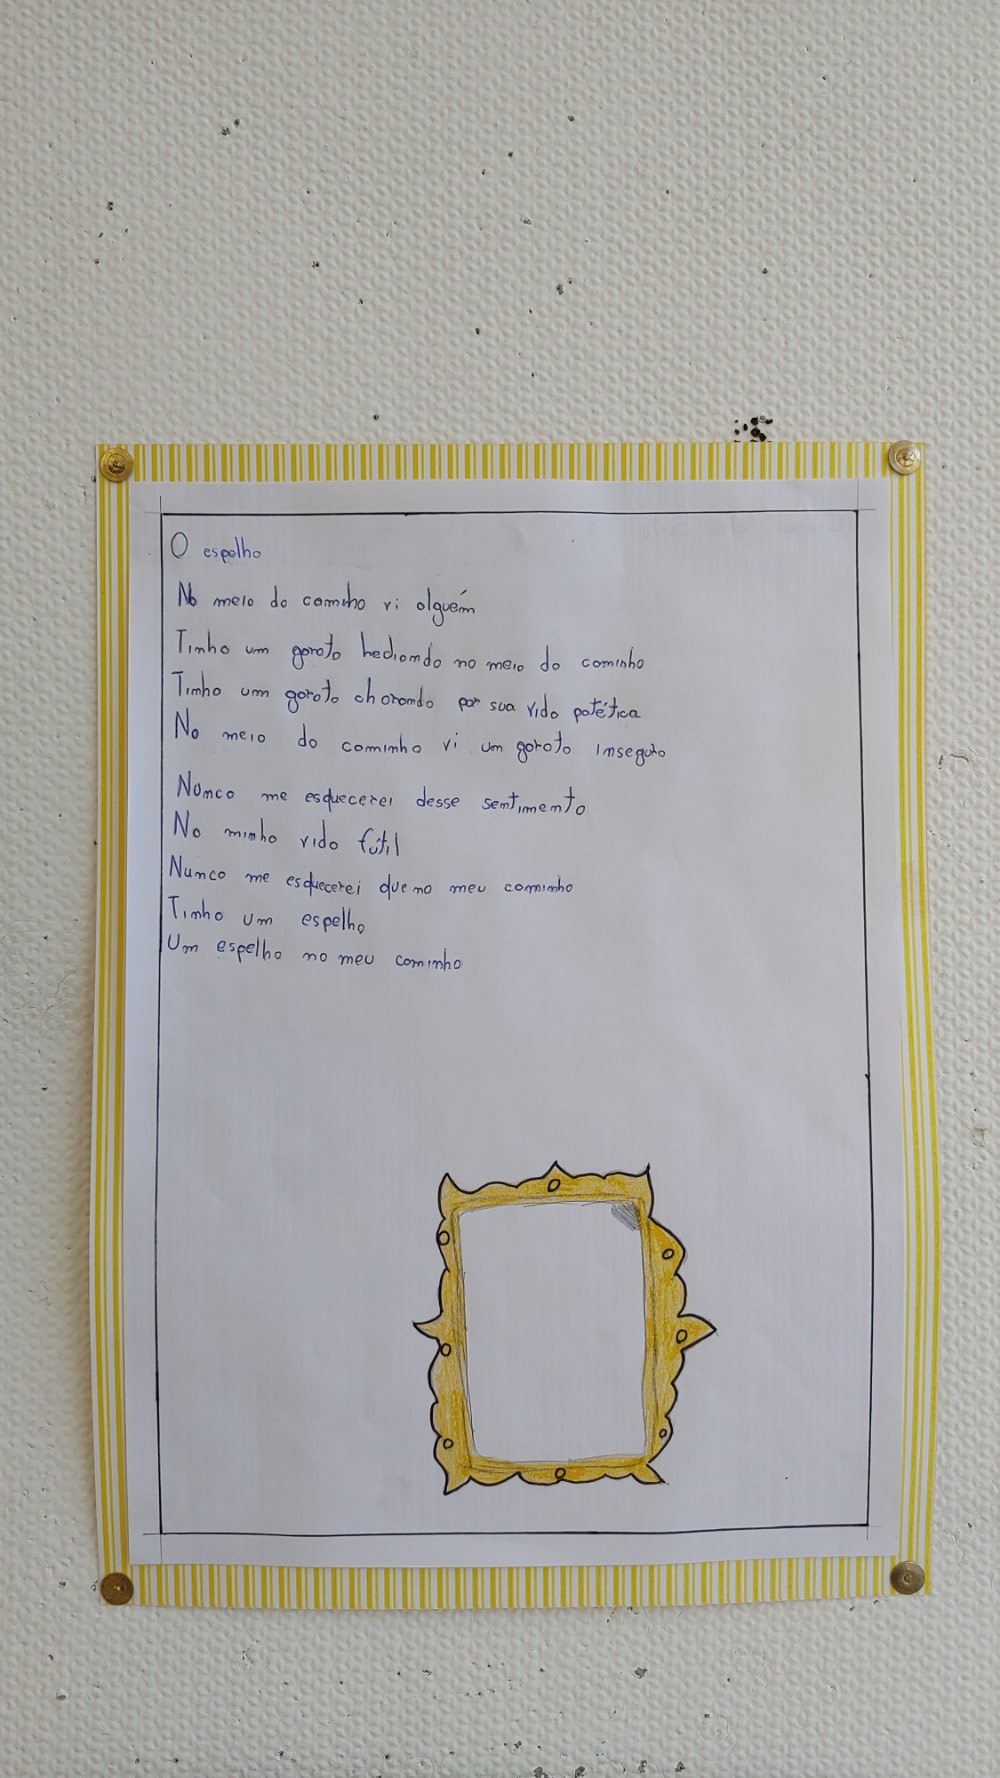 O espelho
No meio do caminho vi alguém
Tinha um garoto hediondo no meio do caminho
Tinha um garoto chorando por sua vida patética
No meio do caminho vi um garoto inseguro
Nunca me esquecerei desse sentimento
Na minha vida fútil
Nunca me esquecerei que no meu caminho
Tinha um espelho
Um espelho no meu caminho